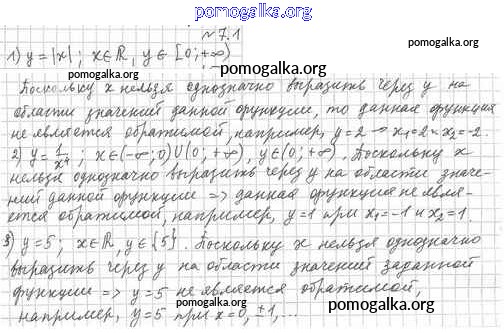 pomogalka.org
№7.1
1) y=|x|; x∈ℝ, y∈[0;+∞)
pomogalka.org
Поскольку x нельзя однозначно выразить через y на
области значений данной функции, то данная функция
не является обратимой, например, y=2 → x₁=2 и x₂=-2.
2) y=1/x⁴; x∈(-∞;0)∪(0;+∞), y∈(0;+∞). Поскольку x
нельзя однозначно выразить через y на области значе-
ний данной функции => данная функция не явля-
ется обратимой, например, y=1 при x₁=-1 и x₂=1.
3) y=5; x∈ℝ, y∈{5}. Поскольку x нельзя однозначно
выразить через y на области значений заданной
функции => y=5 не является обратимой,
например, y=5 при x=0, ±1,...
pomogalka.org
pomogalka.org
pomogalka.org
pomogalka.org
pomogalka.org
pomogalka.org
pomogalka.org